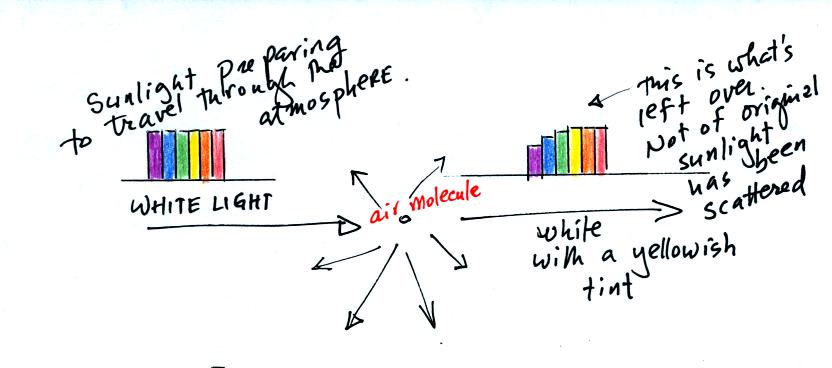 Sunlight preparing
to travel through the
atmosphere.
WHITE LIGHT
air molecule
this is what's
left over.
Not of original
sunlight
has been
scattered
white
with a yellowish
tint